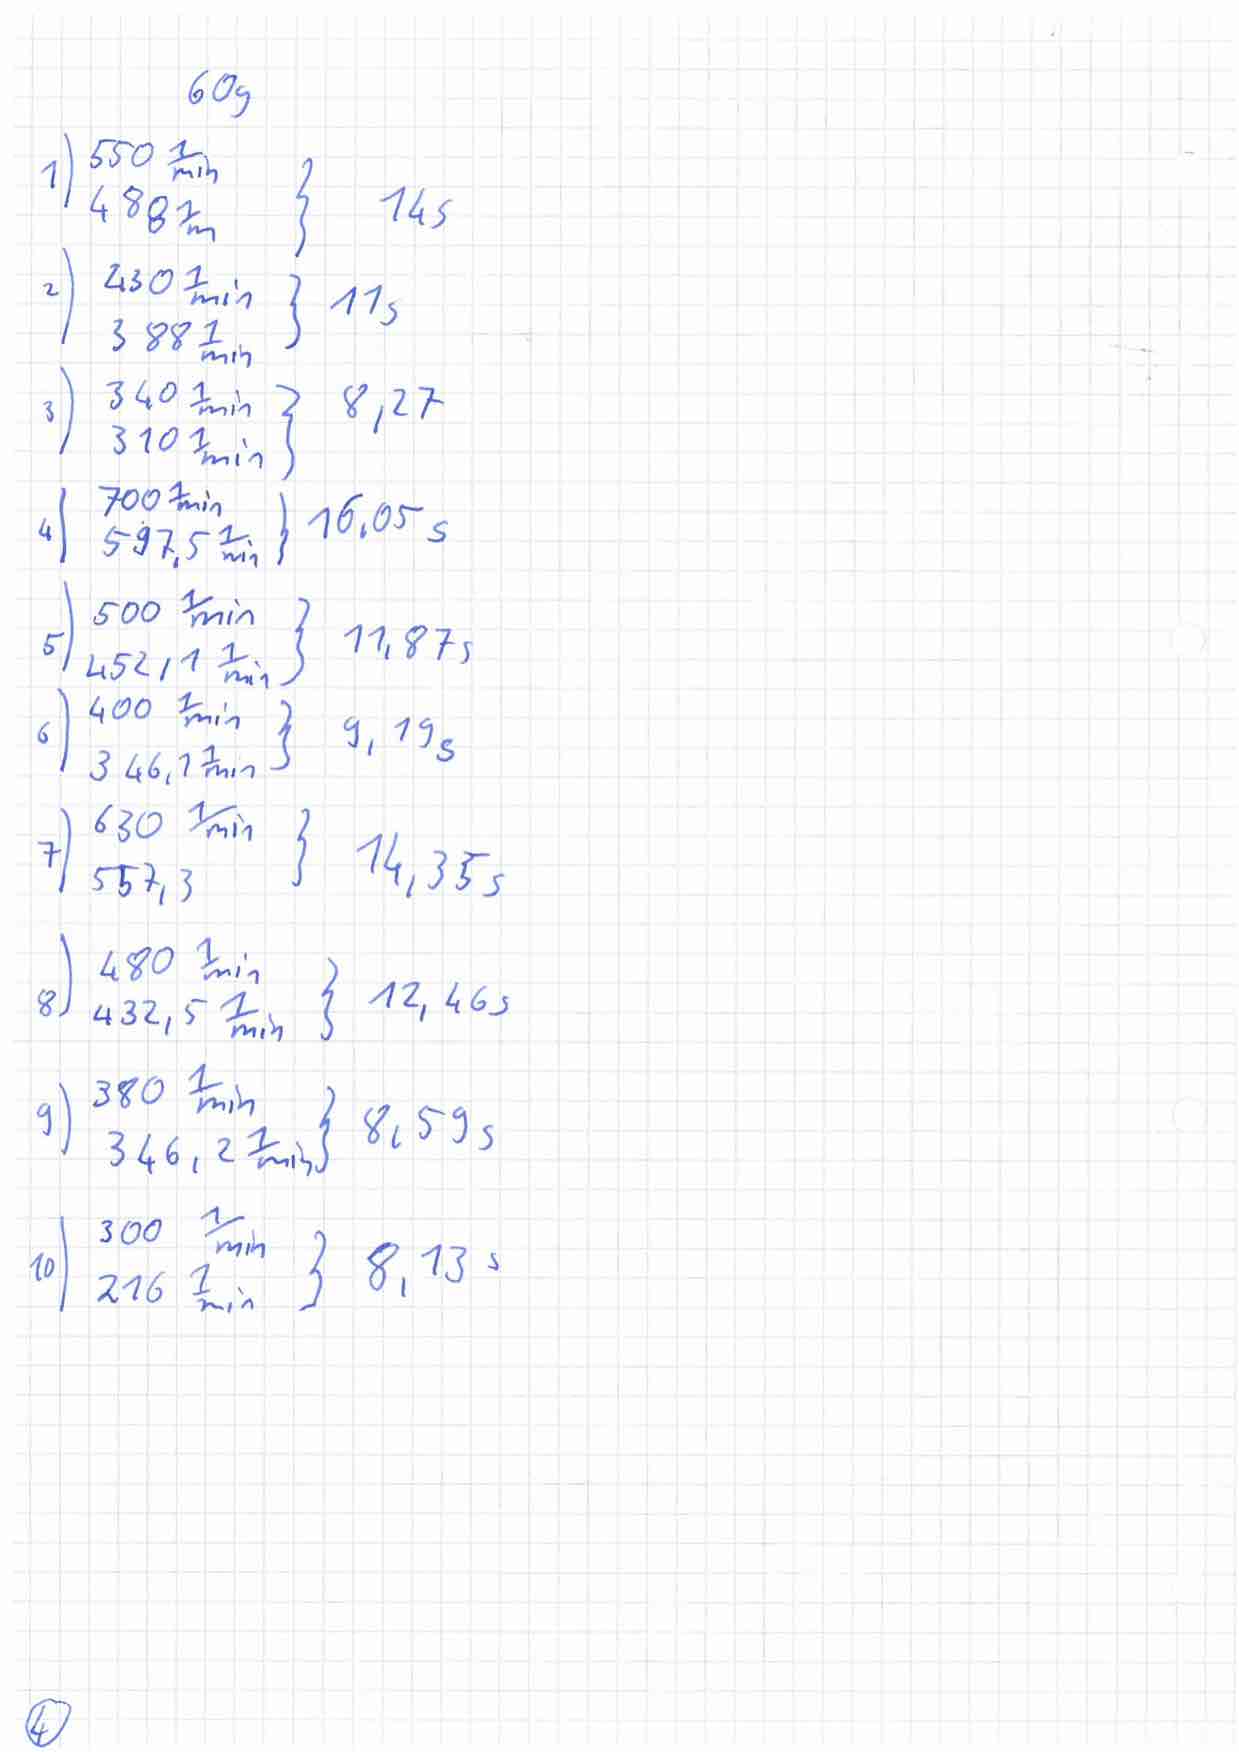 60g
1) 550 1/min
480 1/m } 14s
2) 430 1/min
388 1/min } 11s
3) 340 1/min
310 1/min } 8,27
4) 700 1/min
597,5 1/min } 16,05 s
5) 500 1/min
452,1 1/min } 11,87s
6) 400 1/min
346,1 1/min } 9,19s
7) 630 1/min
557,3 } 14,35s
8) 480 1/min
432,5 1/min } 12,46s
9) 380 1/min
346,2 1/min } 8,59s
10) 300 1/min
216 1/min } 8,13 s
4